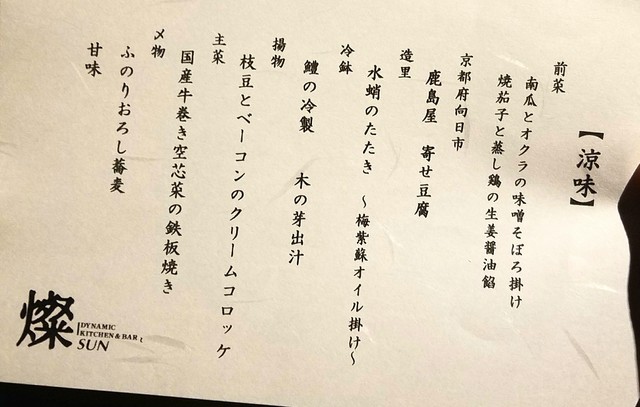 【涼味】
前菜
南瓜とオクラの味噌そぼろ掛け
焼茄子と蒸し鶏の生姜醤油餡
京都府向日市
鹿島屋 寄せ豆腐
造里
水蛸のたたき ～梅紫蘇オイル掛け～
冷鉢
鱧の冷製 木の芽出汁
揚物
枝豆とベーコンのクリームコロッケ
主菜
国産牛巻き空芯菜の鉄板焼き
〆物
ふのりおろし蕎麦
甘味
燦
DYNAMIC
KITCHEN & BAR
SUN